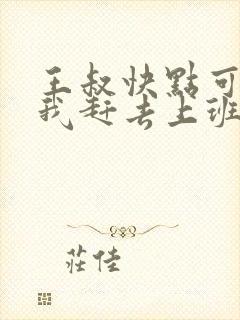 王叔快點可
我赶去上班
莊佳